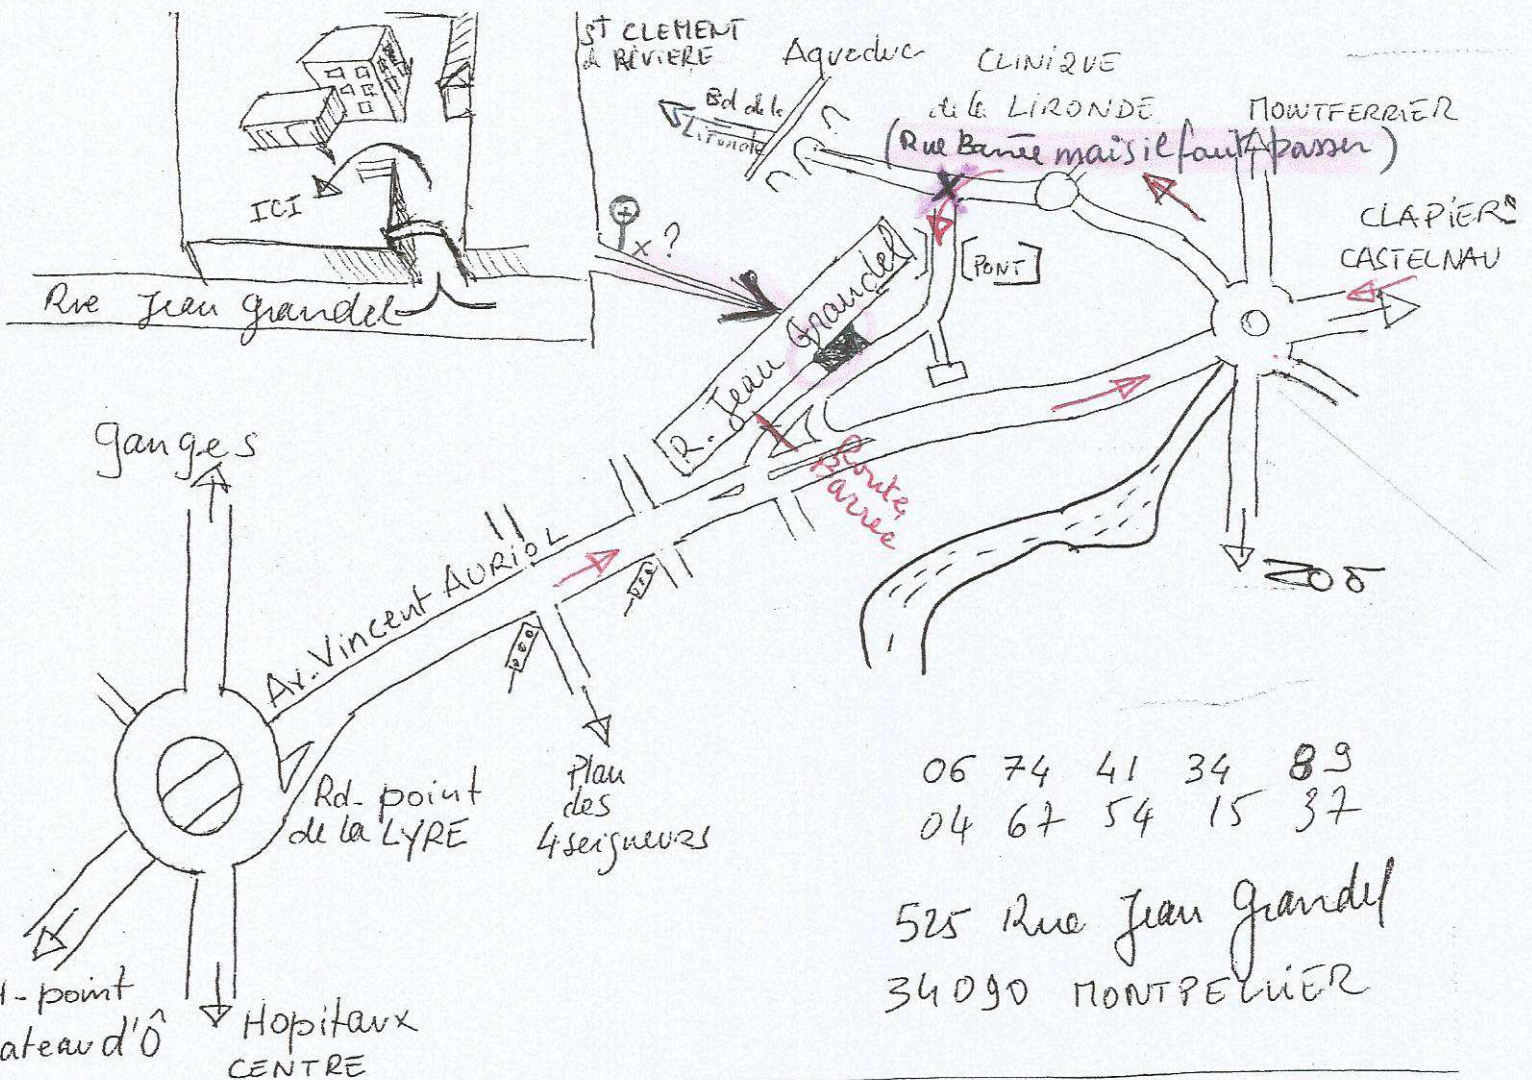 ICI
Rue Jean Grandel
St CLEMENT
de RIVIERE
Aqueduc
Bd de la
Lironde
CLINIQUE
de la LIRONDE
(Rue Barrée mais il faut passer)
MONTFERRIER
CLAPIERS
CASTELNAU
x ?
[PONT]
R. Jean Grandel
Route
Barrée
ZOO
Ganges
Av. Vincent AURIOL
Rd-point
de la LYRE
Plan
des
4 seigneurs
d-point
ateau d'Ô
Hopitaux
CENTRE
06 74 41 34 89
04 67 54 15 37
525 Rue Jean Grandel
34090 MONTPELLIER